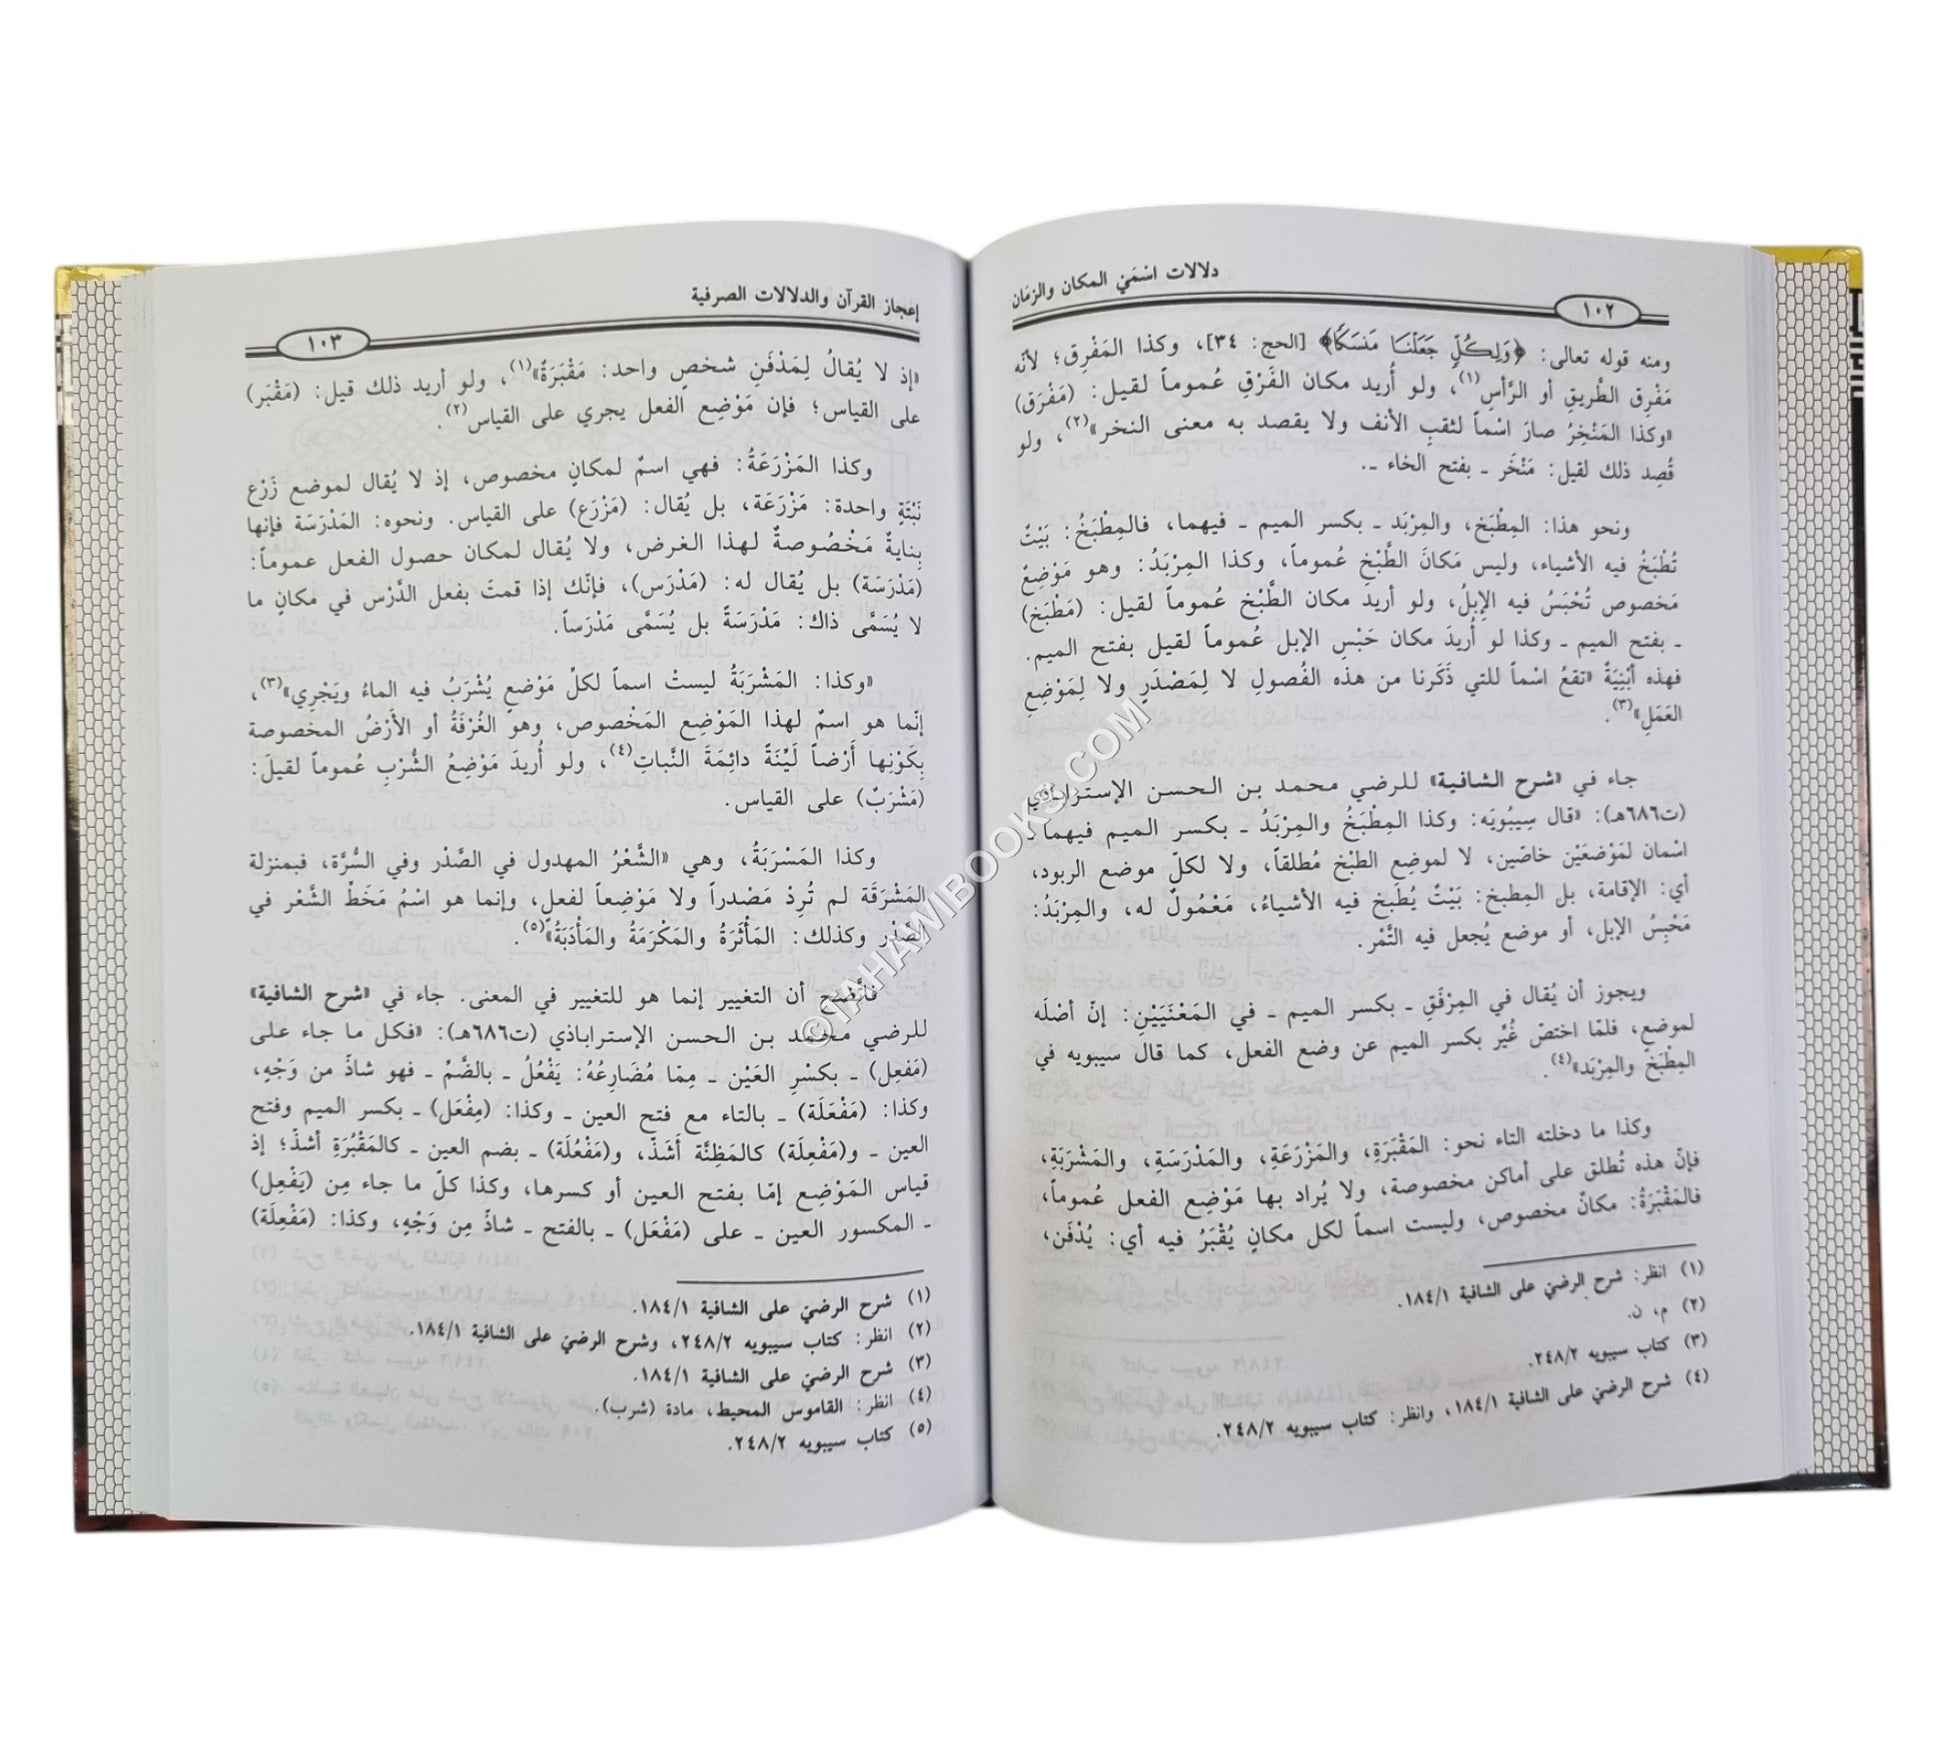 دلالات اسْمَيْ المكان والزمَان
١٠٢
ومنه قوله تعالى: ﴿وَلِكُلٍّ جَعَلْنَا مَنسَكًا﴾ [الحج: ٣٤]، وكذا المَفْرِق؛ لأنّه
مَفْرِق الطَّريقِ أو الرَّأسِ(١)، ولو أُريد مكان الفَرْقِ عُموماً لقيل: (مَفْرَق)
«وكذا المَنْخِرُ صارَ اسْماً لثقبِ الأنف ولا يقصد به معنى النخر»(٢)، ولو
قُصِد ذلك لقيل: مَنْخَر ـ بفتح الخاء ـ.
ونحو هذا: المِطْبَخ، والمِرْبَد ـ بكسر الميم ـ فيهما، فالمِطْبَخُ: بَيْتٌ
تُطْبَخُ فيه الأشياء، وليس مَكانَ الطَّبْخِ عُموماً، وكذا المِرْبَدُ: وهو مَوْضِعٌ
مَخصوص تُحْبَسُ فيه الإبِلُ، ولو أريدَ مكان الطَّبْخ عُموماً لقيل: (مَطْبَخ)
ـ بفتح الميم ـ وكذا لو أُريدَ مكان حَبْسِ الإبل عُموماً لقيل بفتح الميم.
فهذه أبْنِيَةٌ «تقعُ اسْماً للتي ذَكَرنا من هذه الفُصولِ لا لِمَصْدَرٍ ولا لِمَوْضِعِ
العَمَلِ»(٣).
جاء في «شرح الشافية» للرضي محمد بن الحسن الإستراباذي
(ت٦٨٦هـ): «قال سِيبُويَه: وكذا المِطْبَخُ والمِرْبَدُ ـ بكسر الميم فيهما ـ
اسْمان لمَوْضعَيْن خاصّين، لا لموضِع الطبْخ مُطلقاً، ولا لكلّ موضع الربود،
أي: الإقامة، بل المِطبخ: بَيْتٌ يُطبَخ فيه الأشياءُ، مَعْمُولٌ له، والمِرْبَدُ:
مَحْبِسُ الإبل، أو موضع يُجعل فيه التَّمْر.
ويجوز أن يُقال في المِرْفَقِ ـ بكسر الميم ـ في المَعْنَيَيْنِ: إنّ أصْلَه
لموضعٍ، فلمّا اختصّ غُيِّر بكسر الميم عن وضع الفعل، كما قال سيبويه في
المِطْبَخ والمِرْبَد»(٤).
وكذا ما دخلته التاء نحو: المَقْبَرَةِ، والمَزْرَعَةِ، والمَدْرَسَةِ، والمَشْرَبَةِ،
فإنّ هذه تُطلق على أماكن مخصوصة، ولا يُراد بها مَوْضِع الفعل عُموماً،
فالمَقْبَرَةُ: مكانٌ مخصوص، وليست اسماً لكل مكانٍ يُقْبَرُ فيه أي: يُدْفَن،
(١) انظر: شرح الرضيّ على الشافية ١٨٤/١.
(٢) م، ن.
(٣) كتاب سيبويه ٢٤٨/٢.
(٤) شرح الرضيّ على الشافية ١٨٤/١، وانظر: كتاب سيبويه ٢٤٨/٢.
إعجاز القرآن والدلالات الصرفية
١٠٣
«إذ لا يُقالُ لِمَدْفَنِ شخصٍ واحد: مَقْبَرَةٌ»(١)، ولو أريد ذلك قيل: (مَقْبَر)
على القياس؛ فإن مَوْضِع الفعل يجري على القياس(٢).
وكذا المَزْرَعَةُ: فهي اسمٌ لمكانٍ مخصوص، إذ لا يُقال لموضع زَرْع
نَبْتَةٍ واحدة: مَزْرَعَة، بل يُقال: (مَزْرَع) على القياس. ونحوه: المَدْرَسَة فإنها
بِنايةٌ مَخْصُوصةٌ لهذا الغرض، ولا يُقال لمكان حصول الفعل عموماً:
(مَدْرَسَة) بل يُقال له: (مَدْرَس)، فإنّك إذا قمتَ بفعل الدَّرْس في مكانٍ ما
لا يُسَمَّى ذاك: مَدْرَسَةً بل يُسَمَّى مَدْرَساً.
«وكذا: المَشْرَبَةُ ليستْ اسماً لكلّ مَوْضعٍ يُشْرَبُ فيه الماءُ ويَجْرِي»(٣)،
إنّما هو اسمٌ لهذا المَوْضِع المَخْصوص، وهو الغُرْفَةُ أو الأَرْضُ المخصوصة
بِكَوْنِها أَرْضاً لَيِّنَةً دائِمَةَ النَّباتِ(٤)، ولو أُريدَ مَوْضِعُ الشُّرْبِ عُموماً لقيلَ:
(مَشْرَبٌ) على القياس.
وكذا المَسْرَبَةُ، وهي «الشَّعْرُ المهدول في الصَّدْر وفي السُّرَّة، فبمنزلة
المَشْرَقَة لم تُرِدْ مَصْدراً ولا مَوْضِعاً لفعلٍ، وإنما هو اسْمُ مَخَطِّ الشَّعْر في
الصَّدْر وكذلك: المَأْثَرَةُ والمَكْرَمَةُ والمَأدَبَةُ»(٥).
فاتَّضح أن التغيير إنما هو للتغيير في المعنى. جاء في «شرح الشافية»
للرضي محمد بن الحسن الإستراباذي (ت٦٨٦هـ): «فكل ما جاء على
(مَفعِل) ـ بكسْرِ العَيْن ـ مِمّا مُضَارِعُهُ: يَفْعُلُ ـ بالضَّمِّ ـ فهو شاذّ من وَجْهٍ،
وكذا: (مَفْعَلَة) ـ بالتاء مع فتح العين ـ وكذا: (مِفْعَل) ـ بكسر الميم وفتح
العين ـ و(مَفْعِلَة) كالمَظِنَّة أَشَذّ، و(مَفْعُلَة) ـ بضم العين ـ كالمَقْبُرَةِ أشذّ؛ إذ
قياس المَوْضِع إمّا بفتح العين أو كسرها، وكذا كلّ ما جاء مِن (يَفْعِل)
ـ المكسور العين ـ على (مَفْعَل) ـ بالفتح ـ شاذّ مِن وَجْهٍ، وكذا: (مَفْعِلَة)
(١) شرح الرضيّ على الشافية ١٨٤/١.
(٢) انظر: كتاب سيبويه ٢٤٨/٢، وشرح الرضيّ على الشافية ١٨٤/١.
(٣) شرح الرضيّ على الشافية ١٨٤/١.
(٤) انظر: القاموس المحيط، مادة (شرب).
(٥) كتاب سيبويه ٢٤٨/٢.
©TAHAMIBOOKS.COM